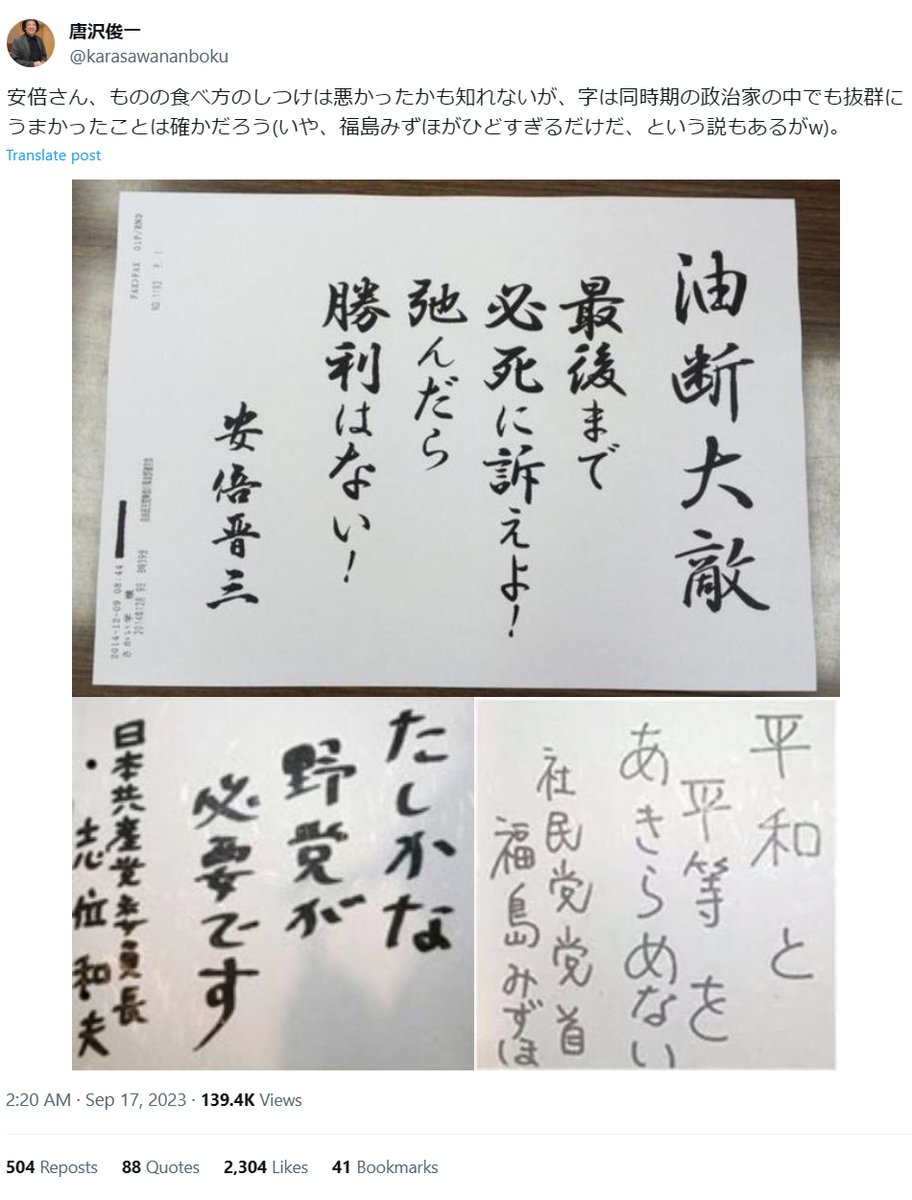 唐沢俊一
@karasawananboku
安倍さん、ものの食べ方のしつけは悪かったかも知れないが、字は同時期の政治家の中でも抜群に
うまかったことは確かだろう(いや、福島みずほがひどすぎるだけだ、という説もあるがw)。
Translate post
油断大敵
最後まで
必死に訴えよ!
弛んだら
勝利はない!
安倍晋三
FAX>FAX 01P/END
NO.1192 P. 1
2014-12-09 08:44
さかい学 様
たしかな
野党が
必要です
日本共産党委員長
・志位和夫
平和と
平等を
あきらめない
社民党党首
福島みずほ
2:20 AM · Sep 17, 2023 · 139.4K Views
504 Reposts 88 Quotes 2,304 Likes 41 Bookmarks